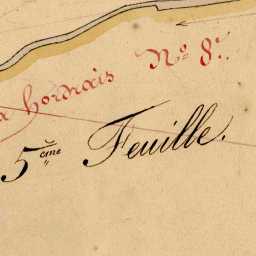 hordrais N.º 8.
5.ème Feuille.